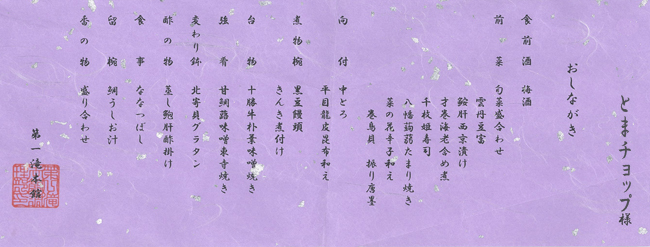 とまチョップ様
おしながき
食前酒 梅酒
前菜 旬菜盛合わせ
雲丹豆富
鮟肝西京漬け
才巻海老含め煮
千枚姫寿司
八幡蒟蒻たまり焼き
菜の花辛子和え
巻鳥貝 振り唐墨
向付 中とろ
平目龍皮昆布和え
煮物椀 黒豆饅頭
きんき煮付け
台物 十勝牛朴葉味噌焼き
強肴 甘鯛蕗味噌東寺焼き
変わり鉢 北寄貝グラタン
酢の物 蒸し鮑肝酢掛け
食事 ななつぼし
留椀 鯛うしお汁
香の物 盛り合わせ
第一滝本館